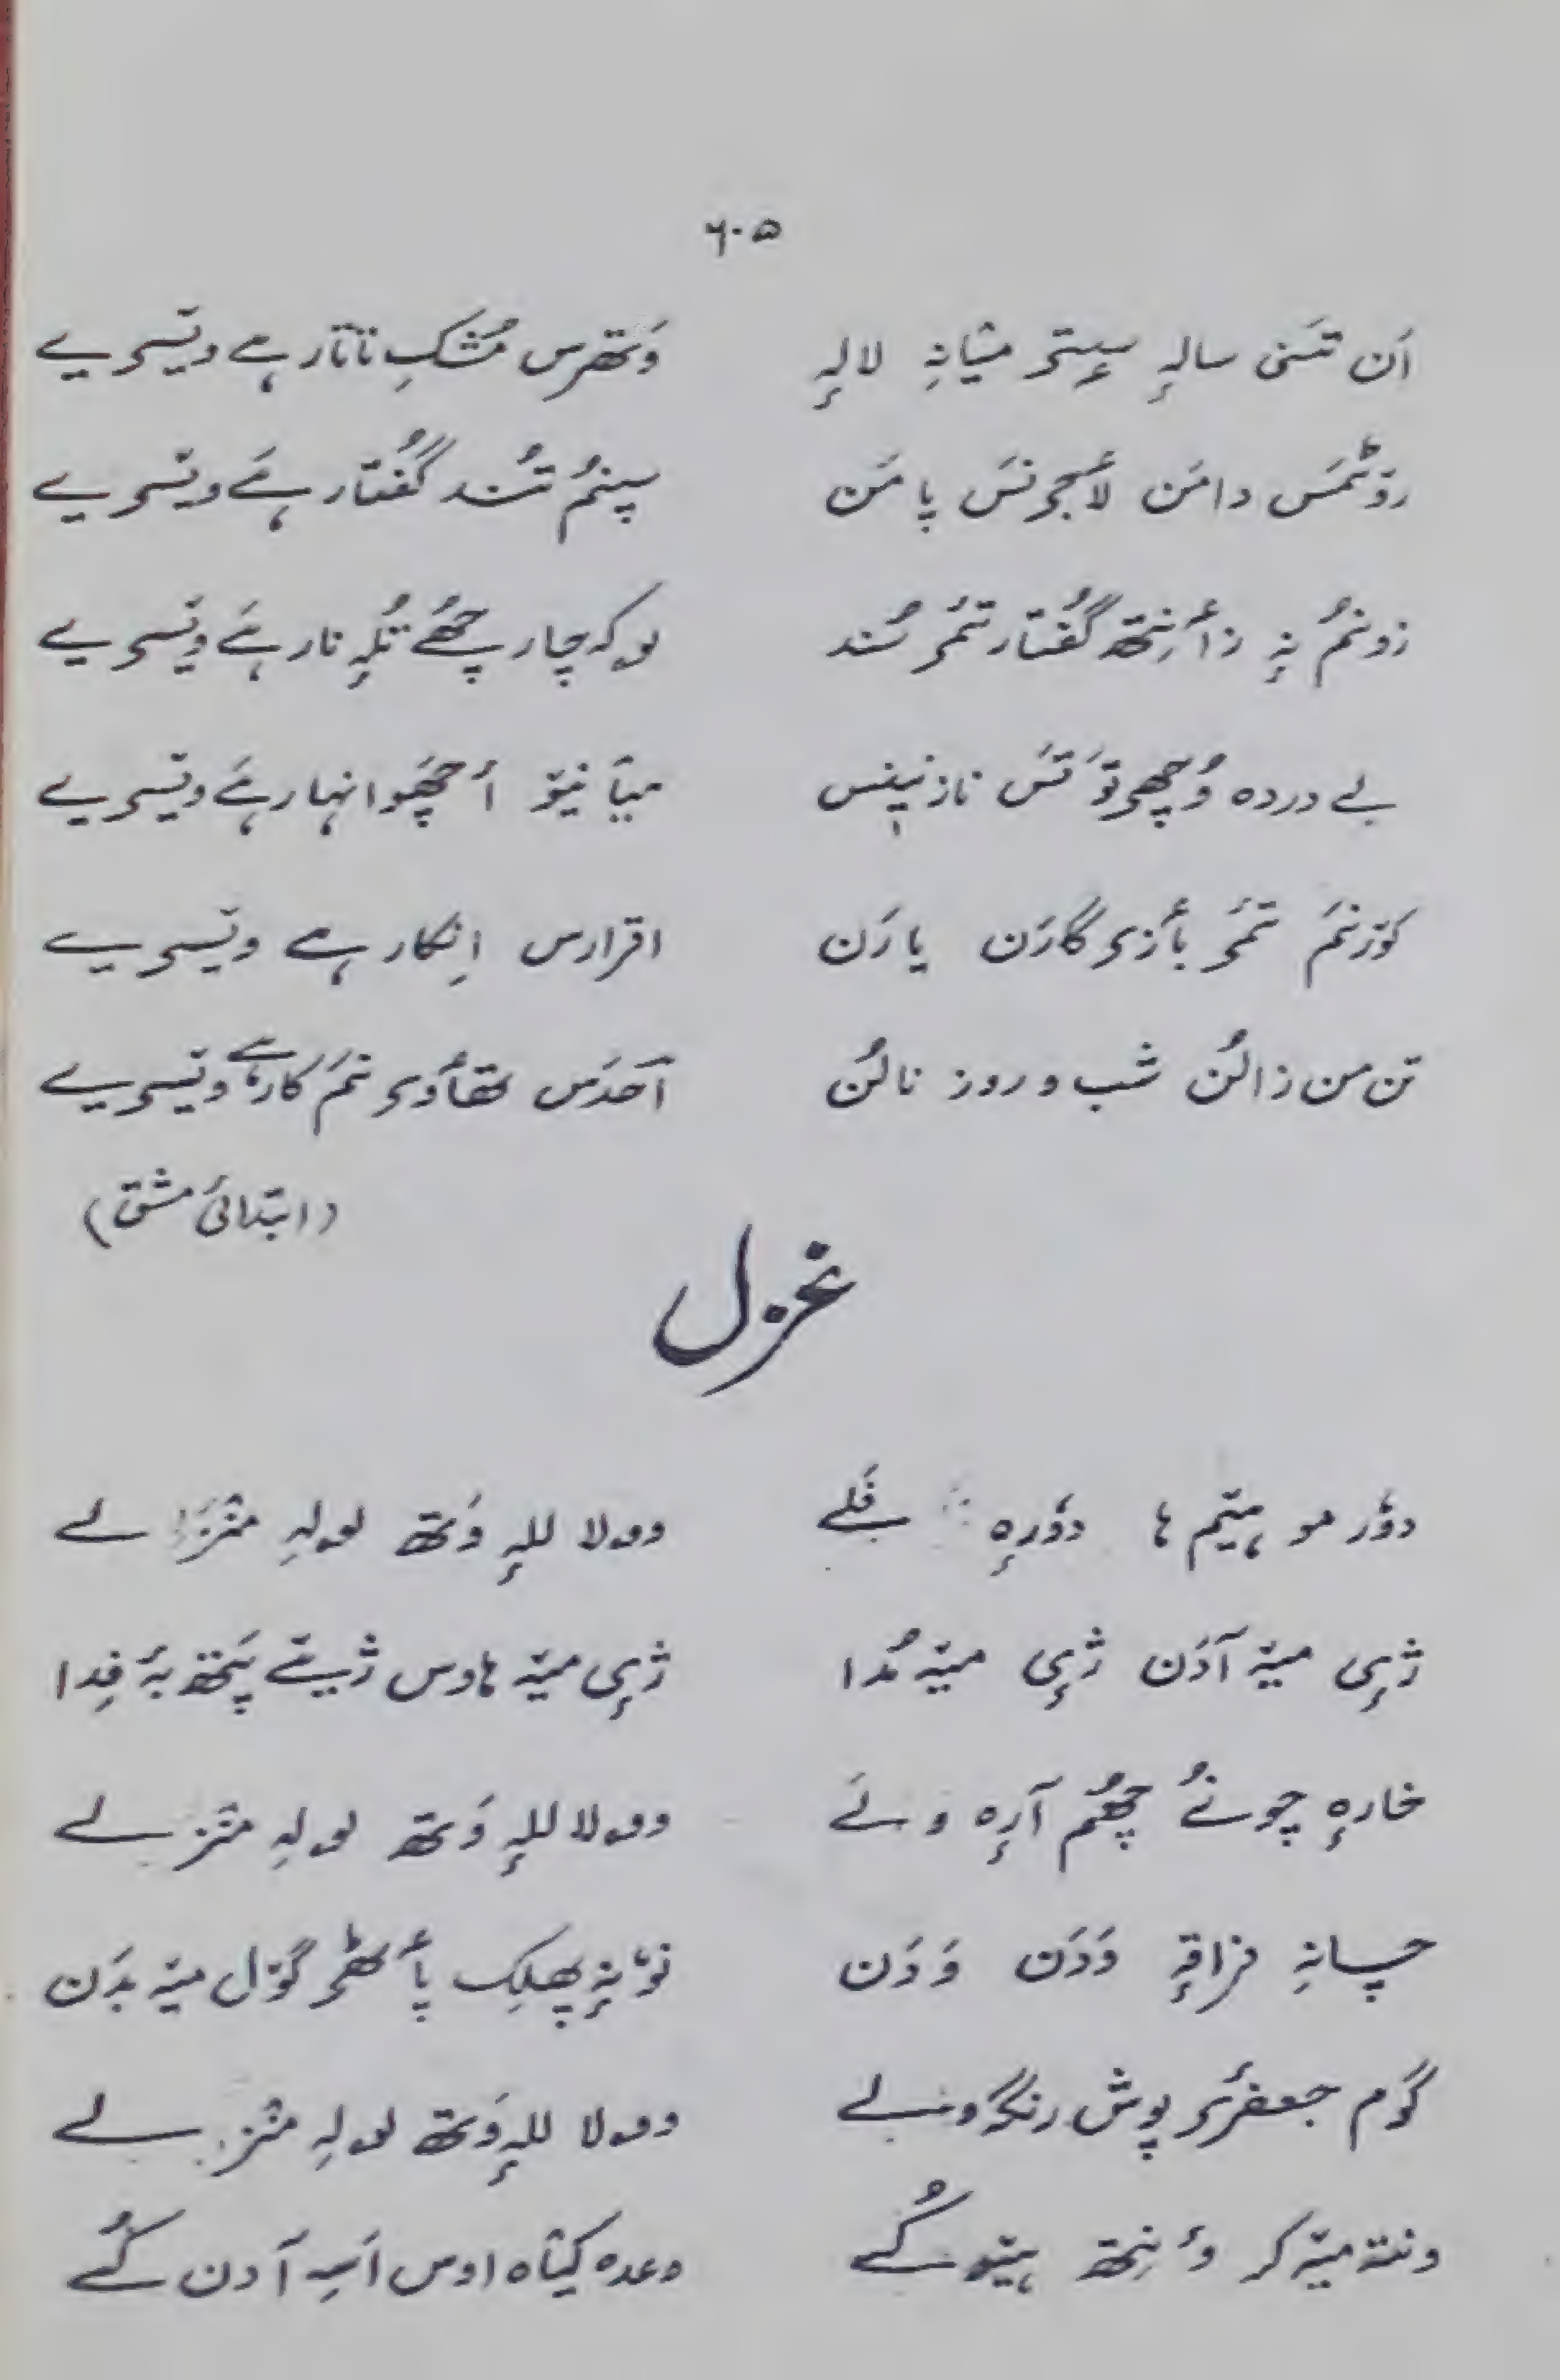 ۶۰۵
أن تَسٕنی سالہٕ سٟتۍ میٛانہِ لالہٕ وَتھرس مُشکِ تاتار ہے ویٚسۍ یے
روٚٹمَس دامَن لٲجۍنَس پامَن سپنُم تُند گُفتار ہےَ ویٚسۍ یے
زونمُ نہٕ زٲنِتھ گُفتار تَمۍ سُند لوکہ چار چھُے تُلہٕ نار ہےَ ویٚسۍ یے
بے دردہ وُچھۍ توٚ تَس نازنیٖنس میٲنیوٚ أچھَو انہار ہےَ ویٚسۍ یے
کوٚرنَم تَمۍ بٲزۍ گارَن یارَن اقرارس اِنکار ہے ویٚسۍ یے
تن من زالُن شب و روز نالُن آحدَس تھٲوۍ نَم کار ہے ویٚسۍ یے
(ابتدائی مشق)
غزل
دوٗر مو ہیٚتم ہا دوٗرہٕ پھلے وولا للہٕ وَتھ لولہِ منٛز لے
ژٕی میٚہ آدَن ژٕی میٚہ مُدا ژٕی میٚہ ہاوس ژیٚے پَتھ بہٕ فِدا
خارہٕ چونُے چھُم آرہٕ ولے وولا للہٕ وَتھ لولہِ منٛز لے
چانہِ فراقہٕ وَدَن وَدَن نوٚنہٕ پھلِک پٲٹھۍ گوٚل میٚہ بدَن
گوٚم جعفٔرۍ پوش رنگ ونے وولا للہٕ وَتھ لولہِ منٛز لے
ونتہ میٚہ کر وٲنِتھ ہیٚتو کُے وعدہ کیٛاہ اوس اَسہِ آدن کُے